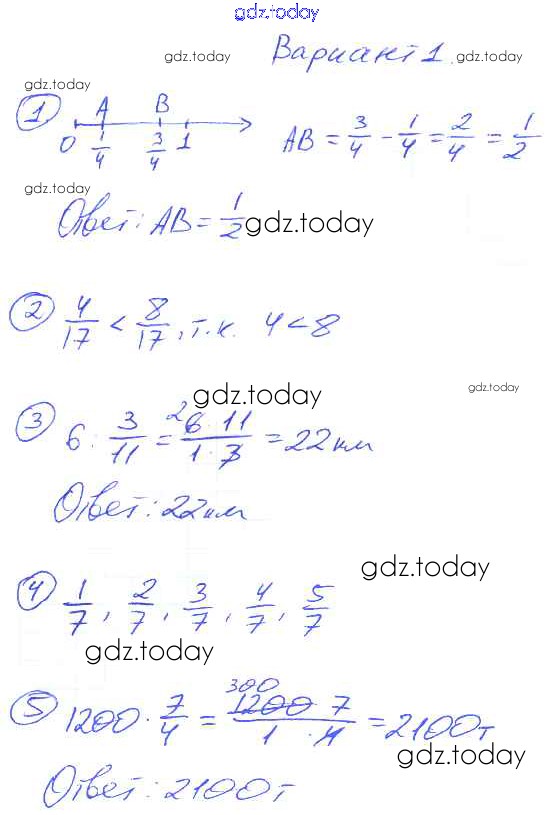 gdz.today
Вариант 1.
gdz.today gdz.today
gdz.today
① A B
0 1/4 3/4 1 AB = 3/4 - 1/4 = 2/4 = 1/2
gdz.today
Ответ: AB = 1/2 gdz.today
② 4/17 < 8/17, т.к. 4 < 8
gdz.today gdz.today
③ 6 : 3/11 = 2 6·11/1·3 = 22 км
Ответ: 22 км
gdz.today
④ 1/7, 2/7, 3/7, 4/7, 5/7
gdz.today
⑤ 1200 · 7/4 = 300 1200·7/1·4 = 2100 т
gdz.today
Ответ: 2100 т